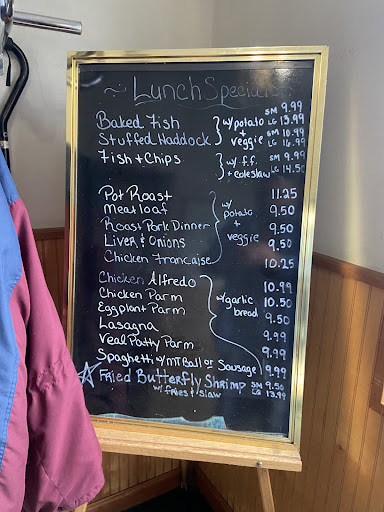 ~ Lunch Specials
Baked Fish } w/ potato + veggie SM 9.99 LG 13.99
Stuffed Haddock SM 10.99 LG 16.99
Fish + Chips } w/ f.f. + coleslaw SM 9.99 LG 14.50
Pot Roast 11.25
Meatloaf 9.50
Roast Pork Dinner } w/ potato + veggie 9.50
Liver & Onions 9.50
Chicken Francaise 10.25
Chicken Alfredo 10.99
Chicken Parm 10.50
Eggplant Parm } w/ garlic bread 9.50
Lasagna 9.99
Veal Patty Parm 9.99
Spaghetti w/ MT Ball or Sausage 9.99
☆ Fried Butterfly Shrimp SM 9.50
w/ fries + slaw LG 13.99